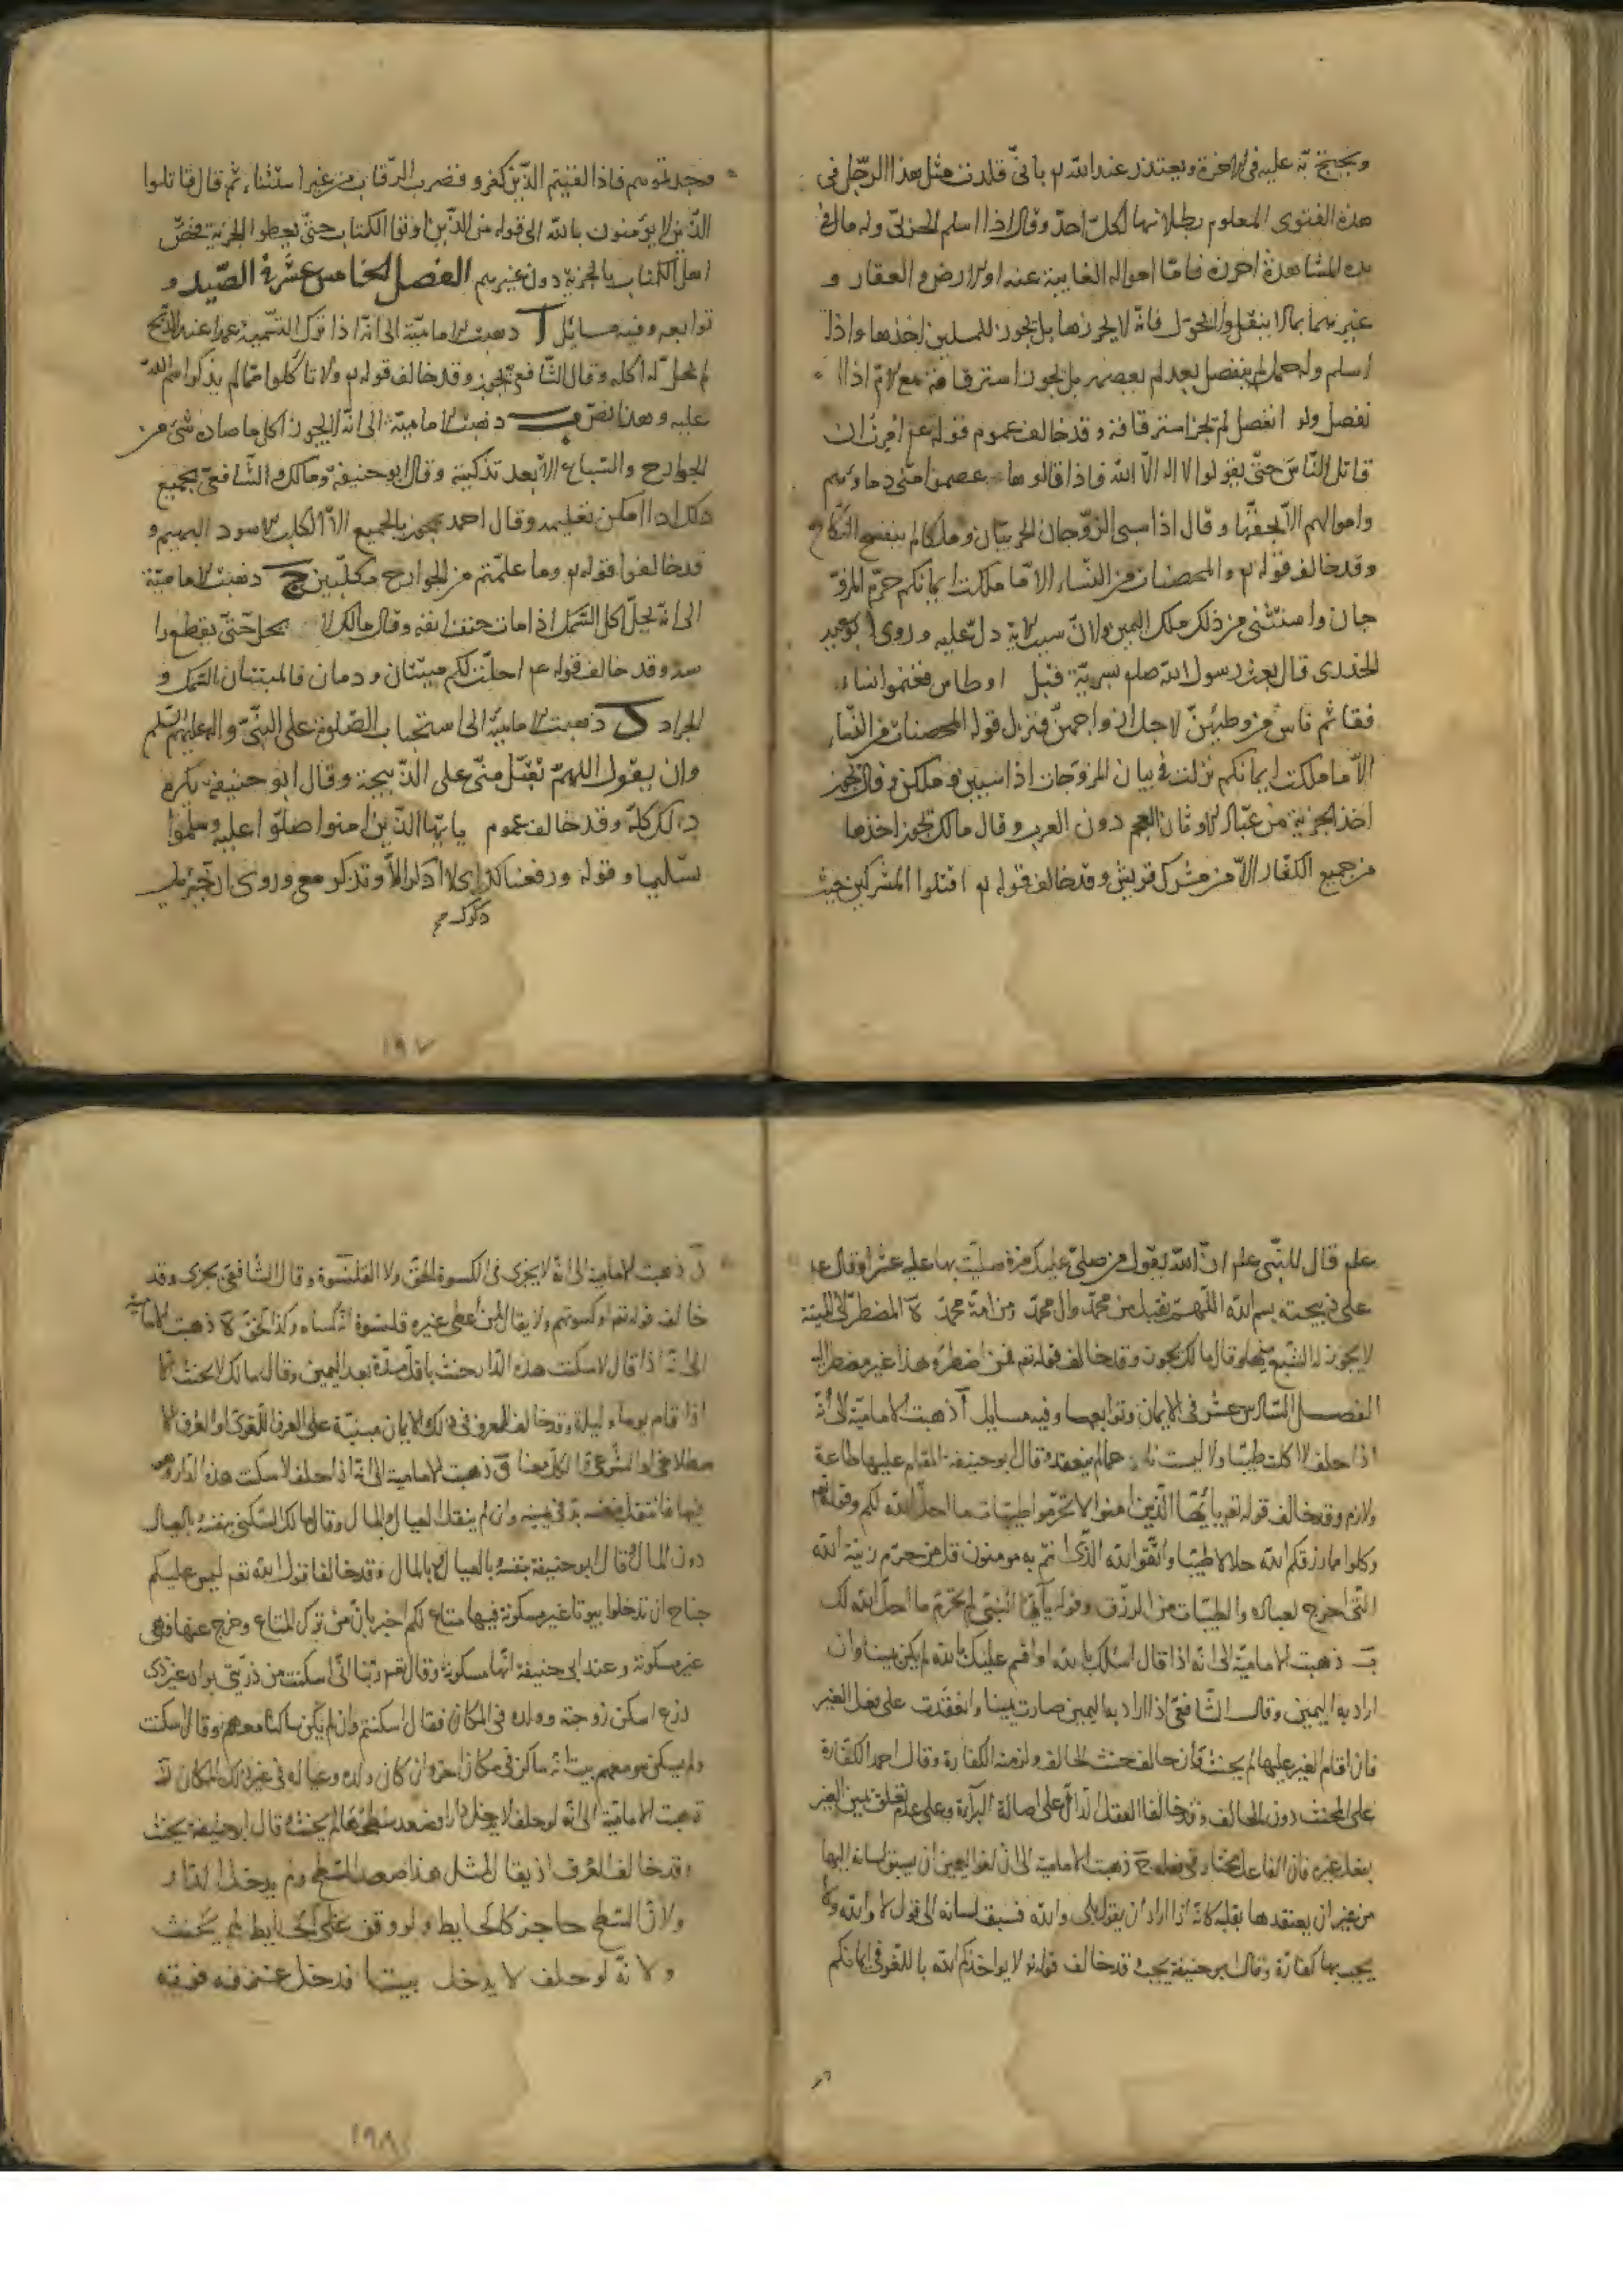 ويحتج به عليه في الاخرة ويعتذر عند الله تم باني قلدت مثل هذا الرجل في
هذه الفتوى المعلوم بطلانها لكل احد وقال اذا اسلم الحربي وله مال في
يده المشاهدة احرزه فامّا امواله الغايبة عنه او الارض والعقار و
غيرهما مما لا ينقل ولا يحول فانه لا يحرزها بل يجوز للمسلمين اخذها واذا
اسلم وله حمل لم ينفصل بعد لم يعصمه بل يجوز استرقاقه مع الام اذا ا
نفصل ولو انفصل لم يجز استرقاقه وقد خالف عموم قوله عم امرت ان
قاتل الناس حتى يقولوا لا اله الا الله فاذا قالوها عصموا منّي دماؤهم
واموالهم الا بحقها وقال اذا سبي الزوجان الحربيان وملكا لم ينفسخ النكاح
وقد خالف قوله تم والمحصنات من النساء الا ما ملكت ايمانكم حرّم المزوّ
جات واستثنى من ذلك ملك اليمين ولانّ سبب الاية دلّ عليه وروى ابو سعيد
الخدري قال بعث رسول الله صلم سرية قبل اوطاس فغنموا نساء
فتأثم ناس من وطئهنّ لاجل ازواجهنّ فنزل قوله والمحصنات من النساء
الا ما ملكت ايمانكم نزلت في بيان المزوجات اذا سبين وملكن وقال يجوز
اخذ الجزية من عبّاد الاوثان العجم دون العرب وقال مالك يجوز اخذها
من جميع الكفار الا من مشرك قريش وقد خالف قوله تم اقتلوا المشركين حيث
وجدتموهم فاذا لقيتم الذين كفروا فضرب الرقاب من غير استثناء ثم قال قاتلوا
الذين لا يؤمنون بالله الى قوله من الذين اوتوا الكتاب حتى يعطوا الجزية فخصّ
اهل الكتاب بالجزية دون غيرهم الفصل الخامس عشرة في الصّيد و
توابعه وفيه مسائل آ ذهبت الامامية الى انه اذا ترك التسمية عمدا عند الذبح
لم يحل له اكله وقال الشافعي يجوز وقد خالف قوله تم ولا تأكلوا ممّا لم يذكر اسم الله
عليه وهذا نصّ ب ذهبت الامامية الى انه لا يجوز اكل ما صاده شئ من
الجوارح والسّباع الا بعد تذكية وقال ابو حنيفة ومالك والشافعي بجميع
ذلك اذا امكن تعليمه وقال احمد يجوز بالجميع الا الكلب الاسود البهيم و
قد خالفوا قوله تم وما علّمتم من الجوارح مكلّبين ج ذهبت الامامية
الى انه يحلّ اكل السّمك اذا مات حتف انفه وقال مالك لا يحل حتى يقطع را
سه وقد خالف قوله عم احلّت لكم ميتتان ودمان فالميتتان السّمك و
الجراد د ذهبت الامامية الى استحباب الصّلوة على النبيّ واله عليهم السّلم
وان يقول اللهم تقبّل منّي على الذبيحة وقال ابو حنيفة يكره
ذلك كلّه وقد خالف عموم يا ايها الذين امنوا صلّوا عليه وسلّموا
تسليما وقوله ورفعنا لك ذكرك اي لا اذكر الا وتذكر معي وروي ان جبرئيل
ذكرك صح
١٩٧
علم قال للنبي علم انّ الله يقول من صلّى عليك مرة صليت بها عليه عشرا وقال عم
على ذبيحته بسم الله اللهمّ تقبل من محمد وال محمد ومن امّة محمد ة المضطر الى الميتة
لا يجوز له الشبع منها وقال مالك يجوز وقد خالف قوله تعم فمن اضطر وهذا غير مضطر اليه
الفصل السادس عشر في الايمان وتوابعها وفيه مسايل آ ذهبت الامامية الى انه
اذا حلف لا اكلت طيبا ولا لبست ناعما لم ينعقد وقال ابو حنيفة المقام عليها طاعة
ولازم وقد خالف قوله تعم يا ايّها الذين امنوا لا تحرّموا طيبات ما احلّ الله لكم وقوله تعم
وكلوا مما رزقكم الله حلالا طيّبا واتّقوا الله الذي انتم به مومنون قل من حرّم زينة الله
التي اخرج لعباده والطيبات من الرزق وقوله يا ايّها النبي لم تحرّم ما احلّ الله لك
ب ذهبت الامامية الى انه اذا قال اسئلك بالله او اقسم عليك بالله لم يكن يمينا وان
اراد به اليمين وقال الشافعي اذا اراد به اليمين صارت يمينا وانعقدت على فعل الغير
فان اقام الغير عليها لم يحنث وان خالف حنث الحالف ولزمته الكفارة وقال احمد الكفارة
على المحنث دون الحالف وقد خالفا العقل الدالّ على اصالة البرآءة وعلى عدم تعلق يمين الغير
بفعل غيره فان الفاعل مختار في فعله ج ذهبت الامامية الى ان لغو اليمين ان يسبق لسانه اليها
من غير ان يعتقدها بقلبه كانه اذا اراد ان يقول بلى والله فسبق لسانه الى قول لا والله ولا
يجب بها كفارة وقال ابو حنيفة يجب وقد خالف قوله تعم لا يواخذكم الله باللغو في ايمانكم
د ذهبت الامامية الى انه لا يجزى في الكسوة الخف ولا القلنسوة وقال الشافعي يجزى وقد
خالف قوله تعم او كسوتهم ولا يقال لمن اعطى غيره قلنسوة انه كساه وكذا الخف ة ذهبت الامامية
الى انه اذا قال لا سكنت هذه الدار يحنث باقل مدّة بعد اليمين وقال مالك لا يحنث الا
اذا اقام يوما وليلة وقد خالف المعروف في ذلك لان الايمان مبنيّة على العرف اللغوي او العرف الا
صطلاحي او الشرعي والكل معنا و ذهبت الامامية الى انه اذا حلف لا سكنت هذه الدار وهو
فيها فانتقل بنفسه برّ في يمينه وان لم ينقل العيال والمال وقال مالك السكنى بنفسه والعيال
دون المال وقال ابو حنيفة بنفسه بالعيال وبالمال وقد خالفا قول الله تعم ليس عليكم
جناح ان تدخلوا بيوتا غير مسكونة فيها متاع لكم اخبر بان من ترك المتاع وخرج عنها فهي
غير مسكونة وعند ابي حنيفة انها مسكونة وقال تعم ربنا انّي اسكنت من ذريتي بواد غير ذي
زرع اسكن زوجته وولده في المكان فقال اسكنتم وان لم يكن ساكنا معهم وقال اسكنت
ولم يسكن هو معهم يثبت انه ساكن في مكان اخر وان كان ولده وعياله في غير ذلك المكان
ذهبت الامامية الى انه لو حلف لا يدخل دارا فصعد سطحها لم يحنث وقال ابو حنيفة يحنث
وقد خالف العرف اذ يقال لمثل هذا صعد السّطح ولم يدخل الدار
ولانّ السّطح حاجز كالحايط ولو وقف على الحايط لم يحنث
ولانّه لو حلف لا يدخل بيتا فدخل غرفة فوقه
١٩٨